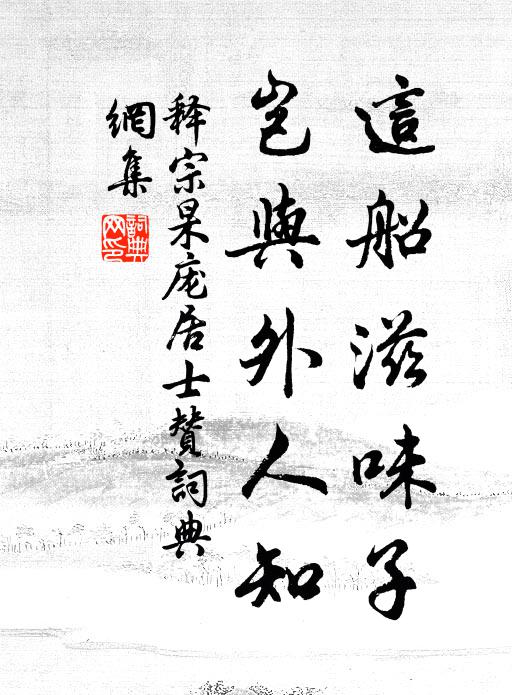 這船滋味子
岂與外人知
释宗杲庞居士赞詞典
網集
詞典
网印